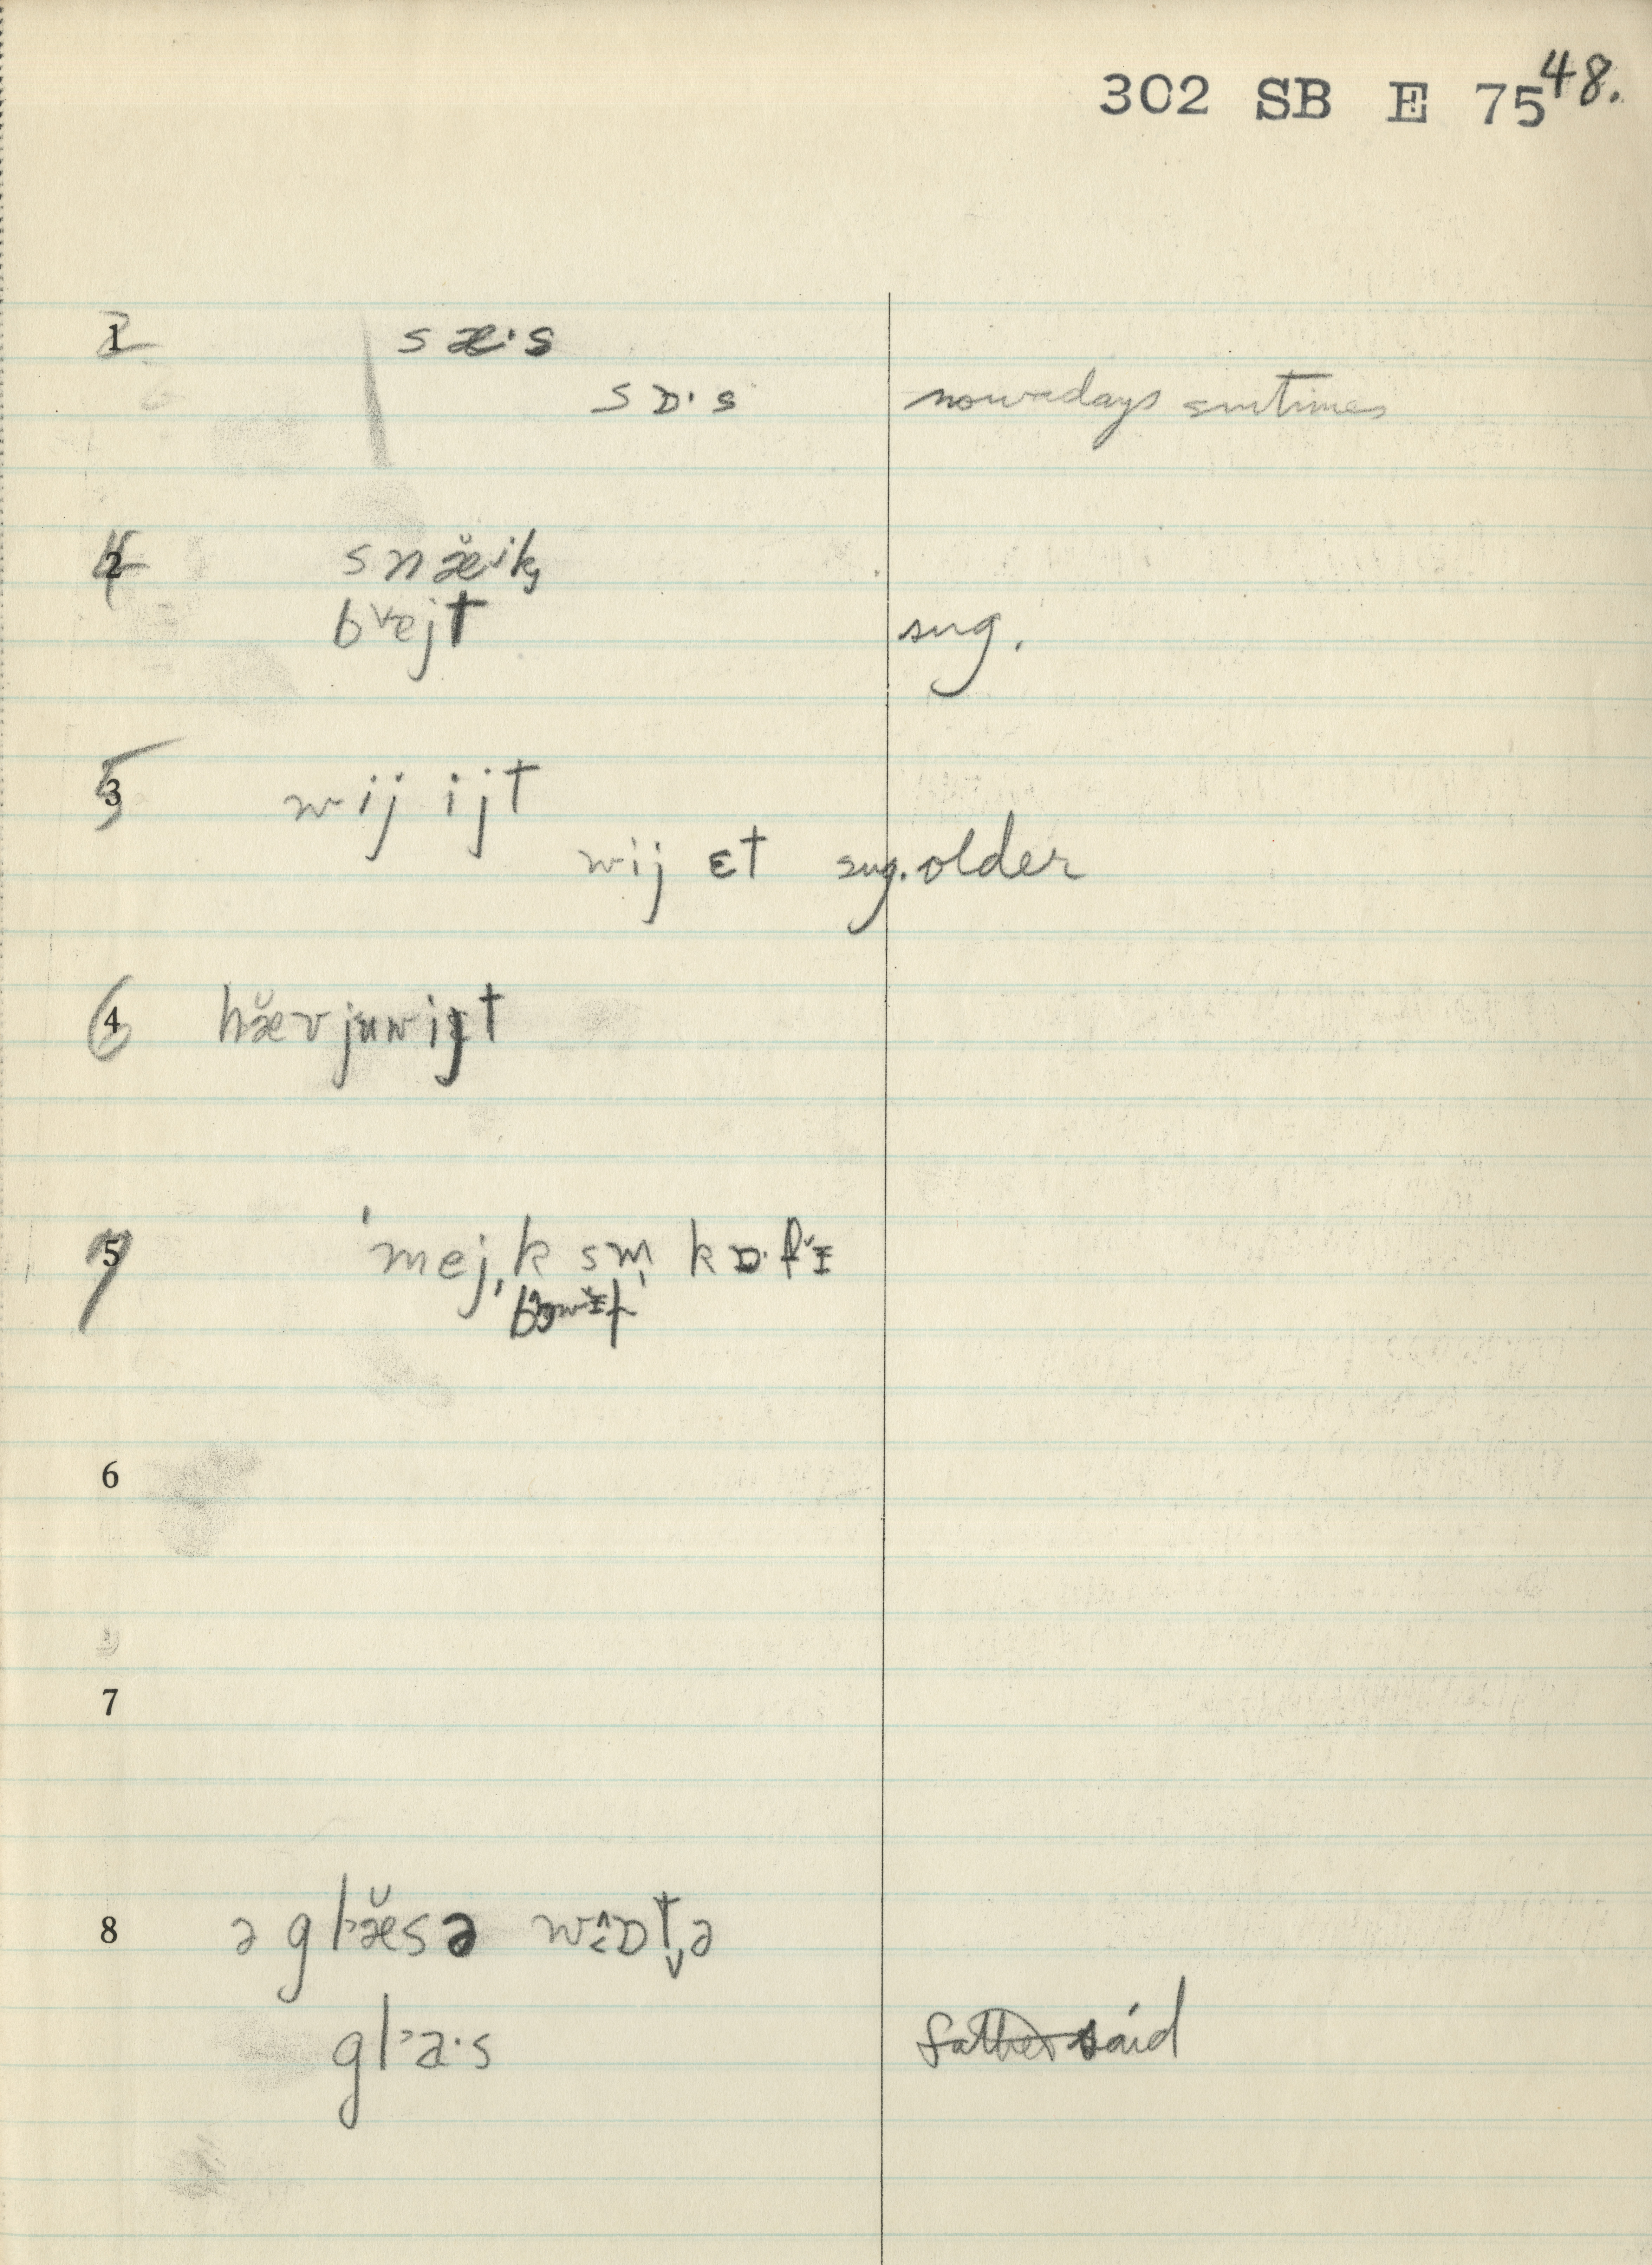 302 SB E 75 48.
1 2 sæ·s
sɒ·s nowadays smtimes
2 4 snæ̆ik
bvejt sug.
3 5 wij ijt
wij ɛt sug. older
4 6 hæ̆v juw ijt
5 7 'mejk sm̩ kɒ·fɪ
6
7
8 ə glæ̆s ə wɒt̬ə
gla·s father said